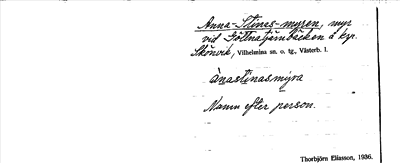 Anna-Stines-myren, myr
vid Göllnatjärnbäcken å krp.
Skönvik, Vilhelmina sn. o. tg., Västerb. l.
ànastìnasmýra
Namn efter person.
Thorbjörn Eliasson, 1936.